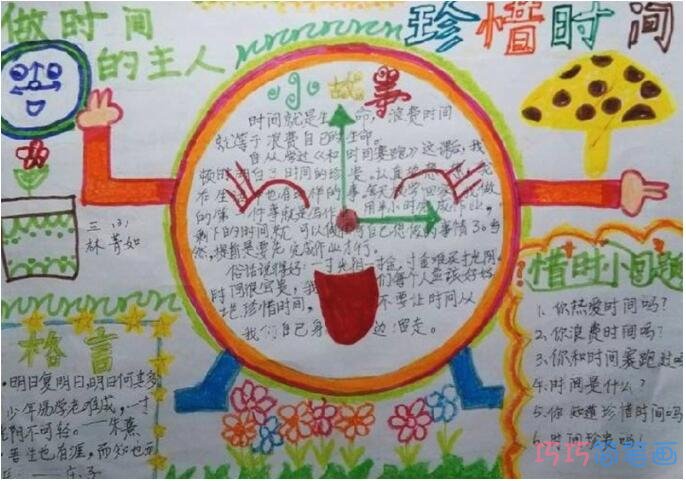 做时间
的主人
珍惜时间
小故事
时间就是生命，浪费时间
就等于浪费自己的生命。
自从学过《和时间赛跑》这课后，我
顿时明白了时间的珍贵。
的第一件事就是
剩下的时间就可以做自己想做的事情了。当
然，提前是要先完成作业才行。
俗话说得好：一寸光阴一寸金，寸金难买寸光阴。
时间很宝贵，我们每个人应该好好
地珍惜时间，不要让时间从
我们自己身边溜走。
三（3）
林菁如
格言
明日复明日，明日何其多
少年易学老难成，一寸
光阴不可轻。——朱熹
吾生也有涯，而知也无
涯——庄子
惜时小问题
1、你热爱时间吗？
2、你浪费时间吗？
3、你和时间赛跑过吗
4、时间是什么？
5、你知道珍惜时间吗
6、时间珍贵吗？
巧巧简笔画